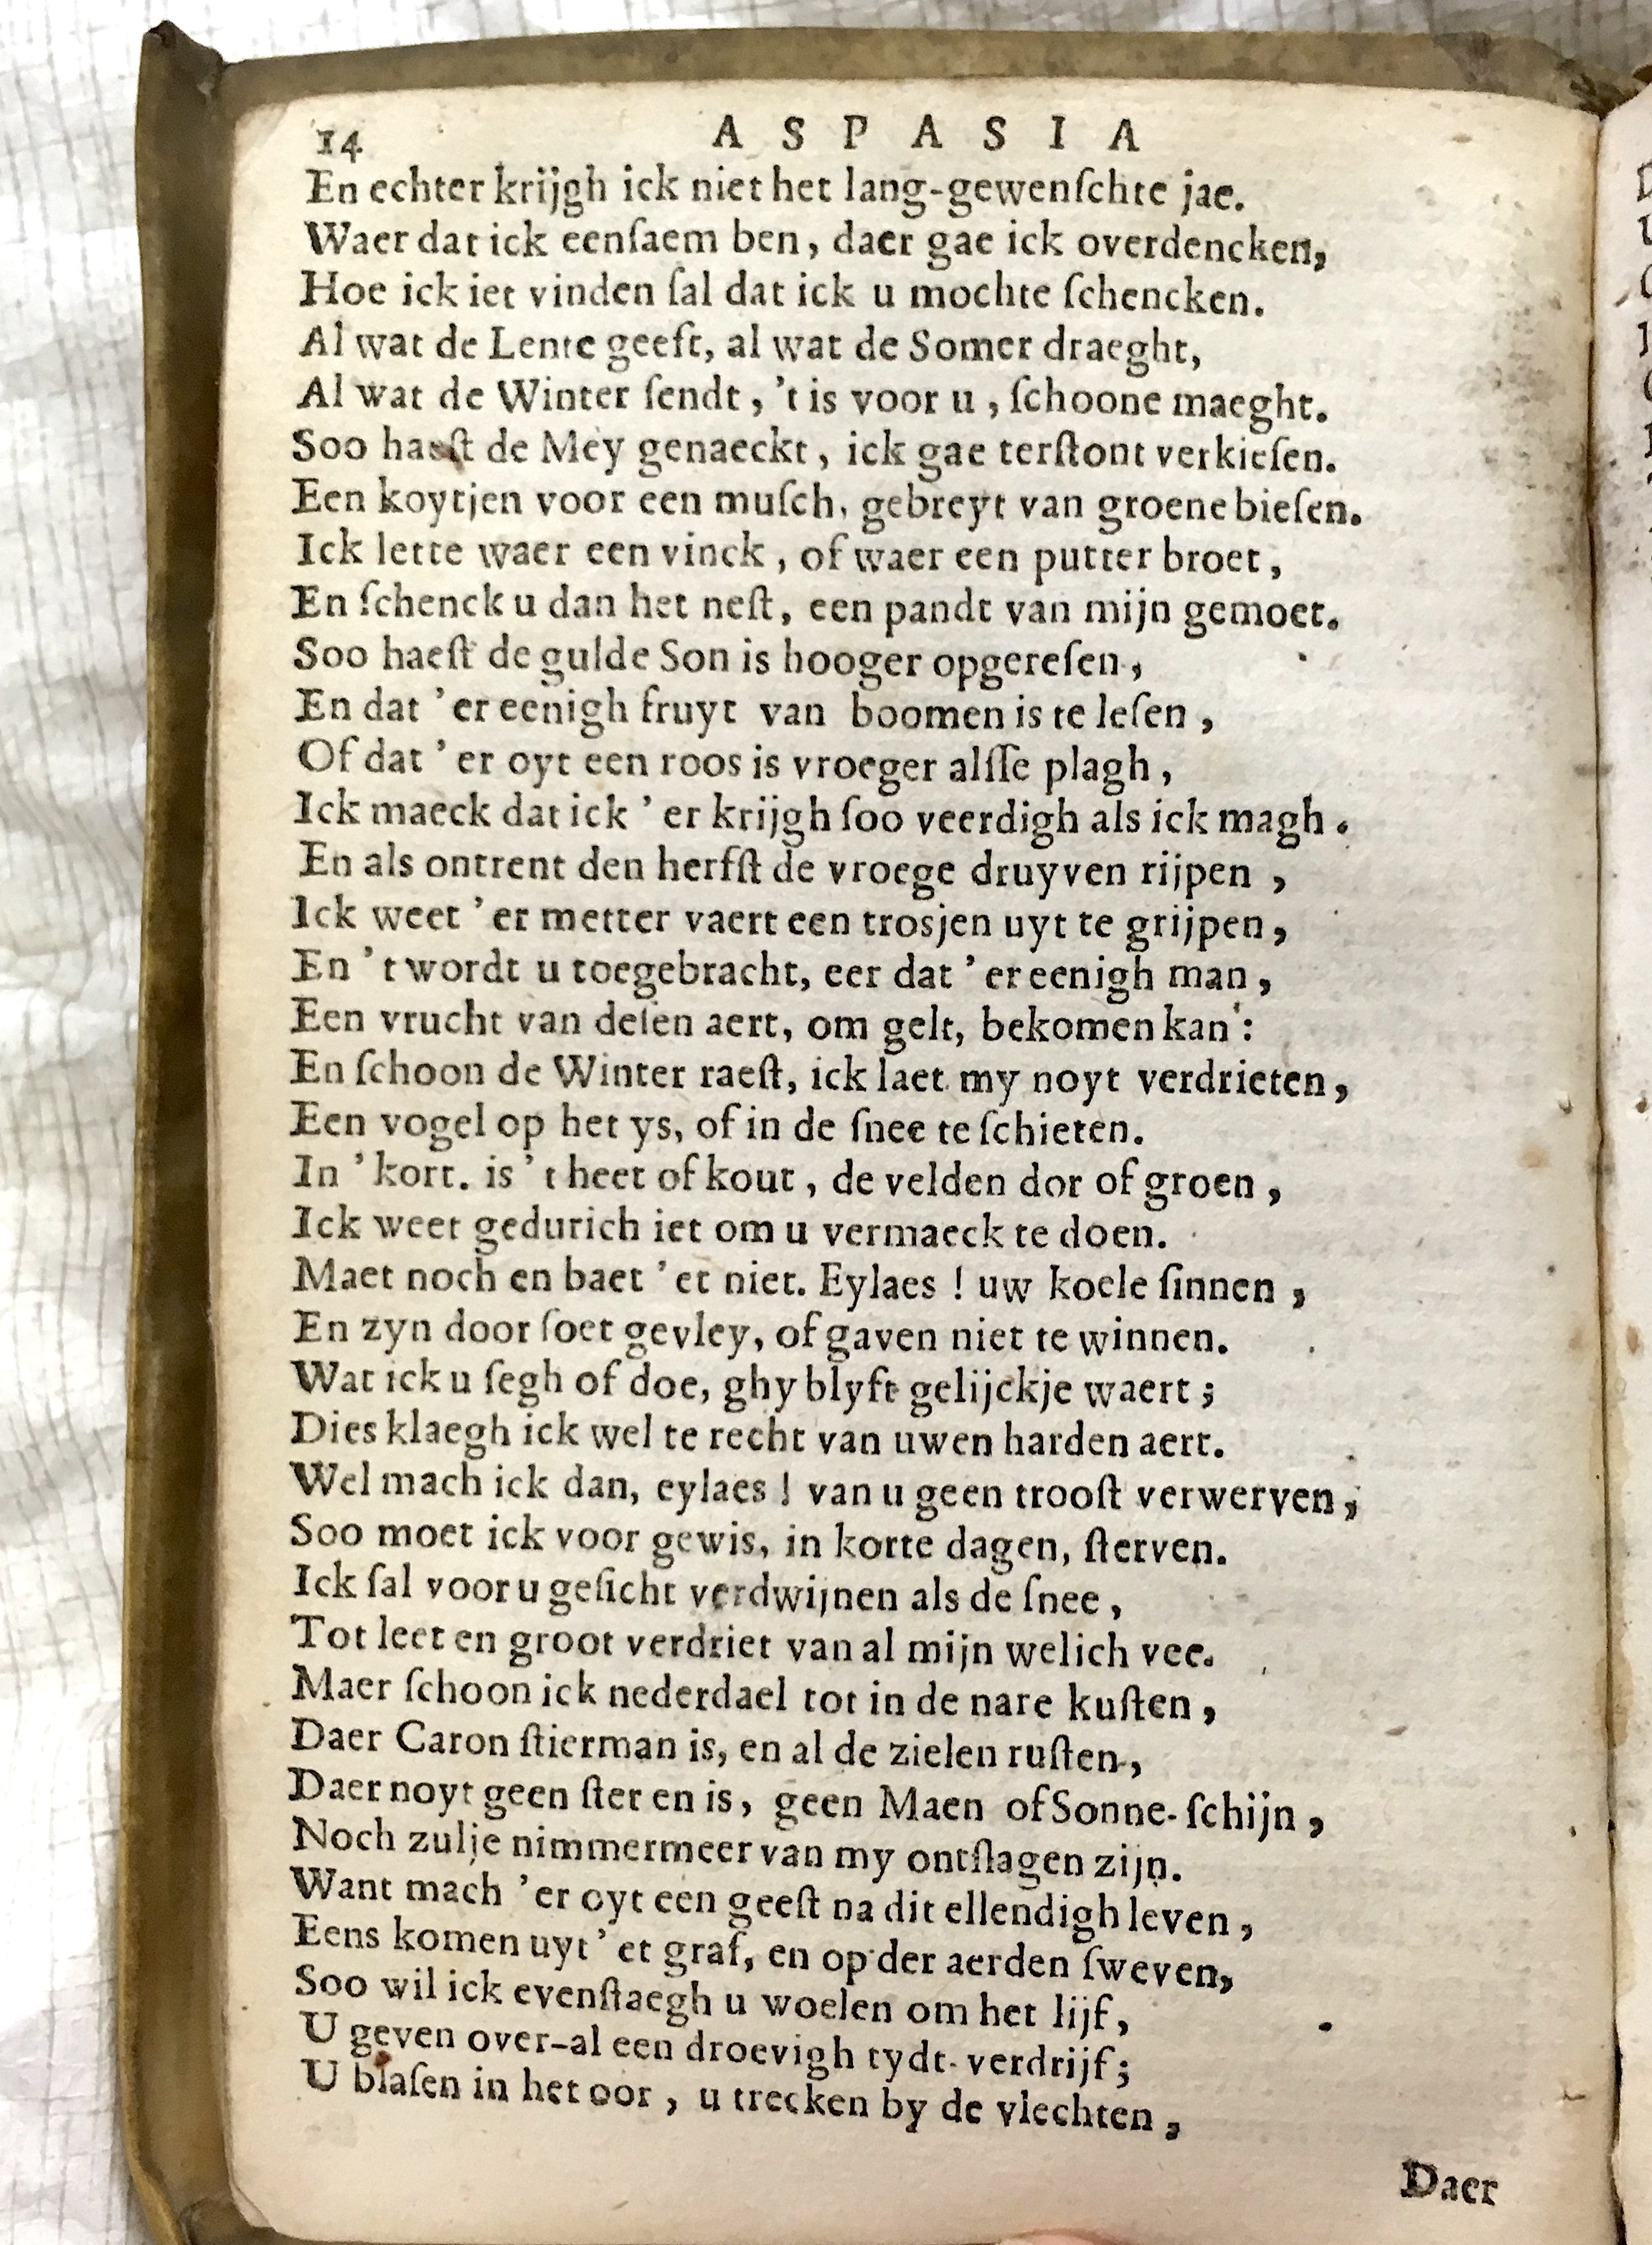 14 ASPASIA
En echter krijgh ick niet het lang-gewenſchte jae.
Waer dat ick eenſaem ben, daer gae ick overdencken,
Hoe ick iet vinden ſal dat ick u mochte ſchencken.
Al wat de Lente geeft, al wat de Somer draeght,
Al wat de Winter ſendt, 't is voor u, ſchoone maeght.
Soo haeſt de Mey genaeckt, ick gae terſtont verkieſen.
Een koytjen voor een muſch, gebreyt van groene bieſen.
Ick lette waer een vinck, of waer een putter broet,
En ſchenck u dan het neſt, een pandt van mijn gemoet.
Soo haeſt de gulde Son is hooger opgereſen,
En dat 'er eenigh fruyt van boomen is te leſen,
Of dat 'er oyt een roos is vroeger alſſe plagh,
Ick maeck dat ick 'er krijgh ſoo veerdigh als ick magh.
En als ontrent den herfſt de vroege druyven rijpen,
Ick weet 'er metter vaert een trosjen uyt te grijpen,
En 't wordt u toegebracht, eer dat 'er eenigh man,
Een vrucht van deſen aert, om gelt, bekomen kan':
En ſchoon de Winter raeſt, ick laet my noyt verdrieten,
Een vogel op het ys, of in de ſnee te ſchieten.
In 'kort. is 't heet of kout, de velden dor of groen,
Ick weet gedurich iet om u vermaeck te doen.
Maet noch en baet 'et niet. Eylaes! uw koele ſinnen,
En zyn door ſoet gevley, of gaven niet te winnen.
Wat ick u ſegh of doe, ghy blyft gelijckje waert;
Dies klaegh ick wel te recht van uwen harden aert.
Wel mach ick dan, eylaes! van u geen trooſt verwerven,
Soo moet ick voor gewis, in korte dagen, ſterven.
Ick ſal voor u geſicht verdwijnen als de ſnee,
Tot leet en groot verdriet van al mijn welich vee.
Maer ſchoon ick nederdael tot in de nare kuſten,
Daer Caron ſtierman is, en al de zielen ruſten,
Daer noyt geen ſter en is, geen Maen of Sonne-ſchijn,
Noch zulje nimmermeer van my ontſlagen zijn.
Want mach 'er oyt een geeſt na dit ellendigh leven,
Eens komen uyt 'et graf, en op der aerden ſweven,
Soo wil ick evenſtaegh u woelen om het lijf,
U geven over-al een droevigh tydt-verdrijf;
U blaſen in het oor, u trecken by de vlechten,
Daer